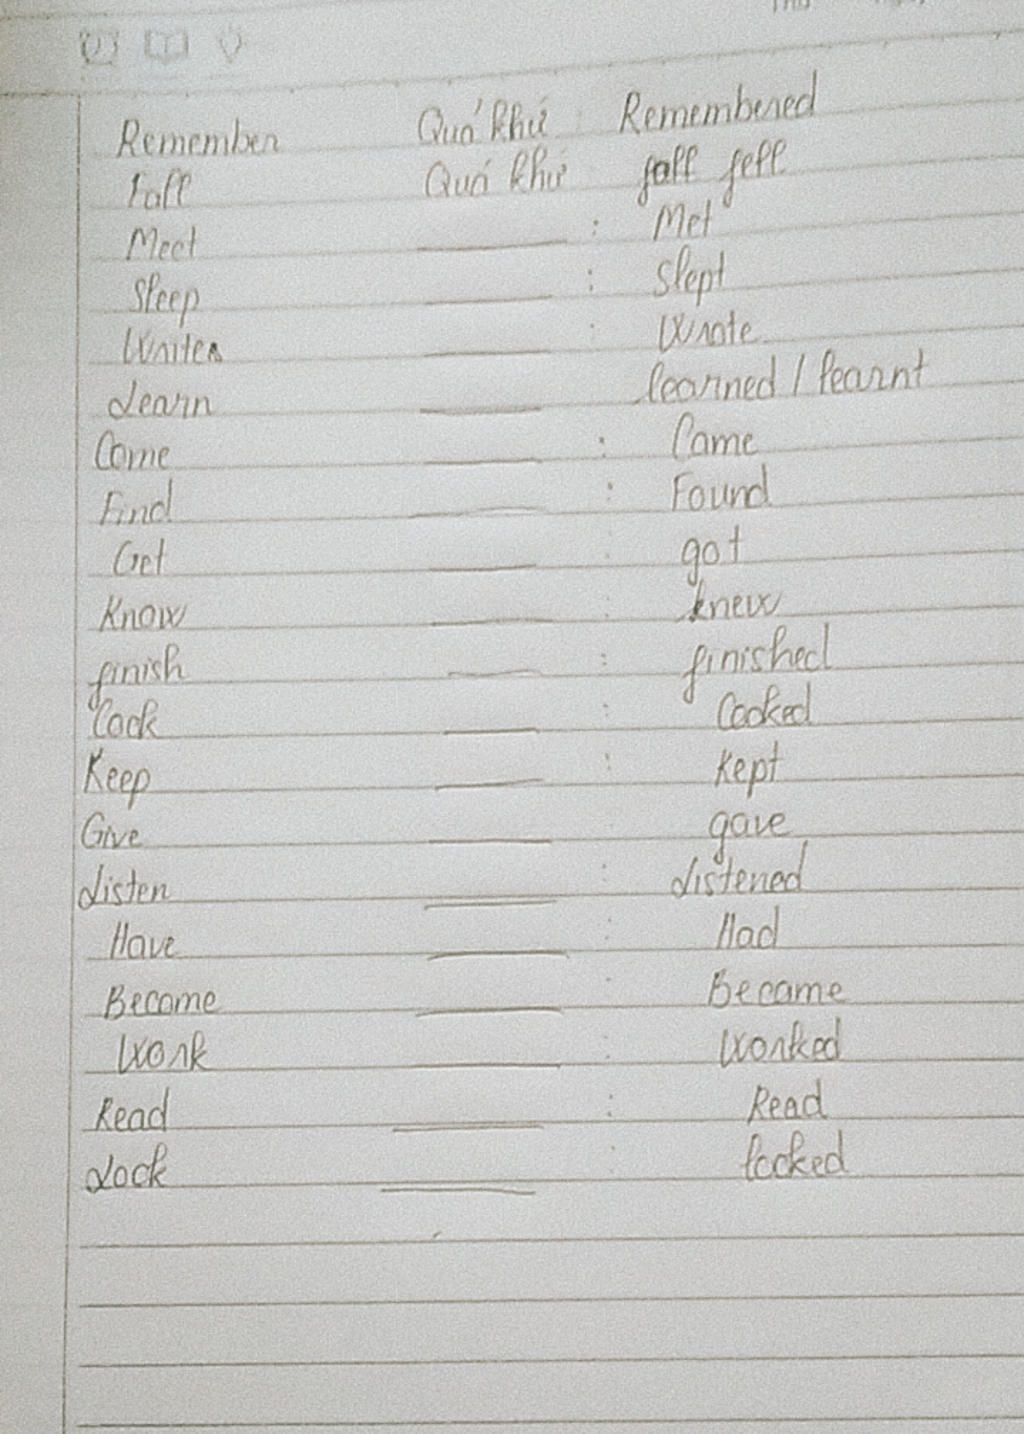 Remember Quá khứ : Remembered
Fall Quá khứ fall fell
Meet : Met
Sleep : Slept
Write : Wrote
Learn learned / learnt
Come : Came
Find : Found
Get : got
Know : knew
finish : finished
Cook : Cooked
Keep : Kept
Give : gave
Listen : Listened
Have : Had
Become : Became
Work : Worked
Read : Read
Look : looked